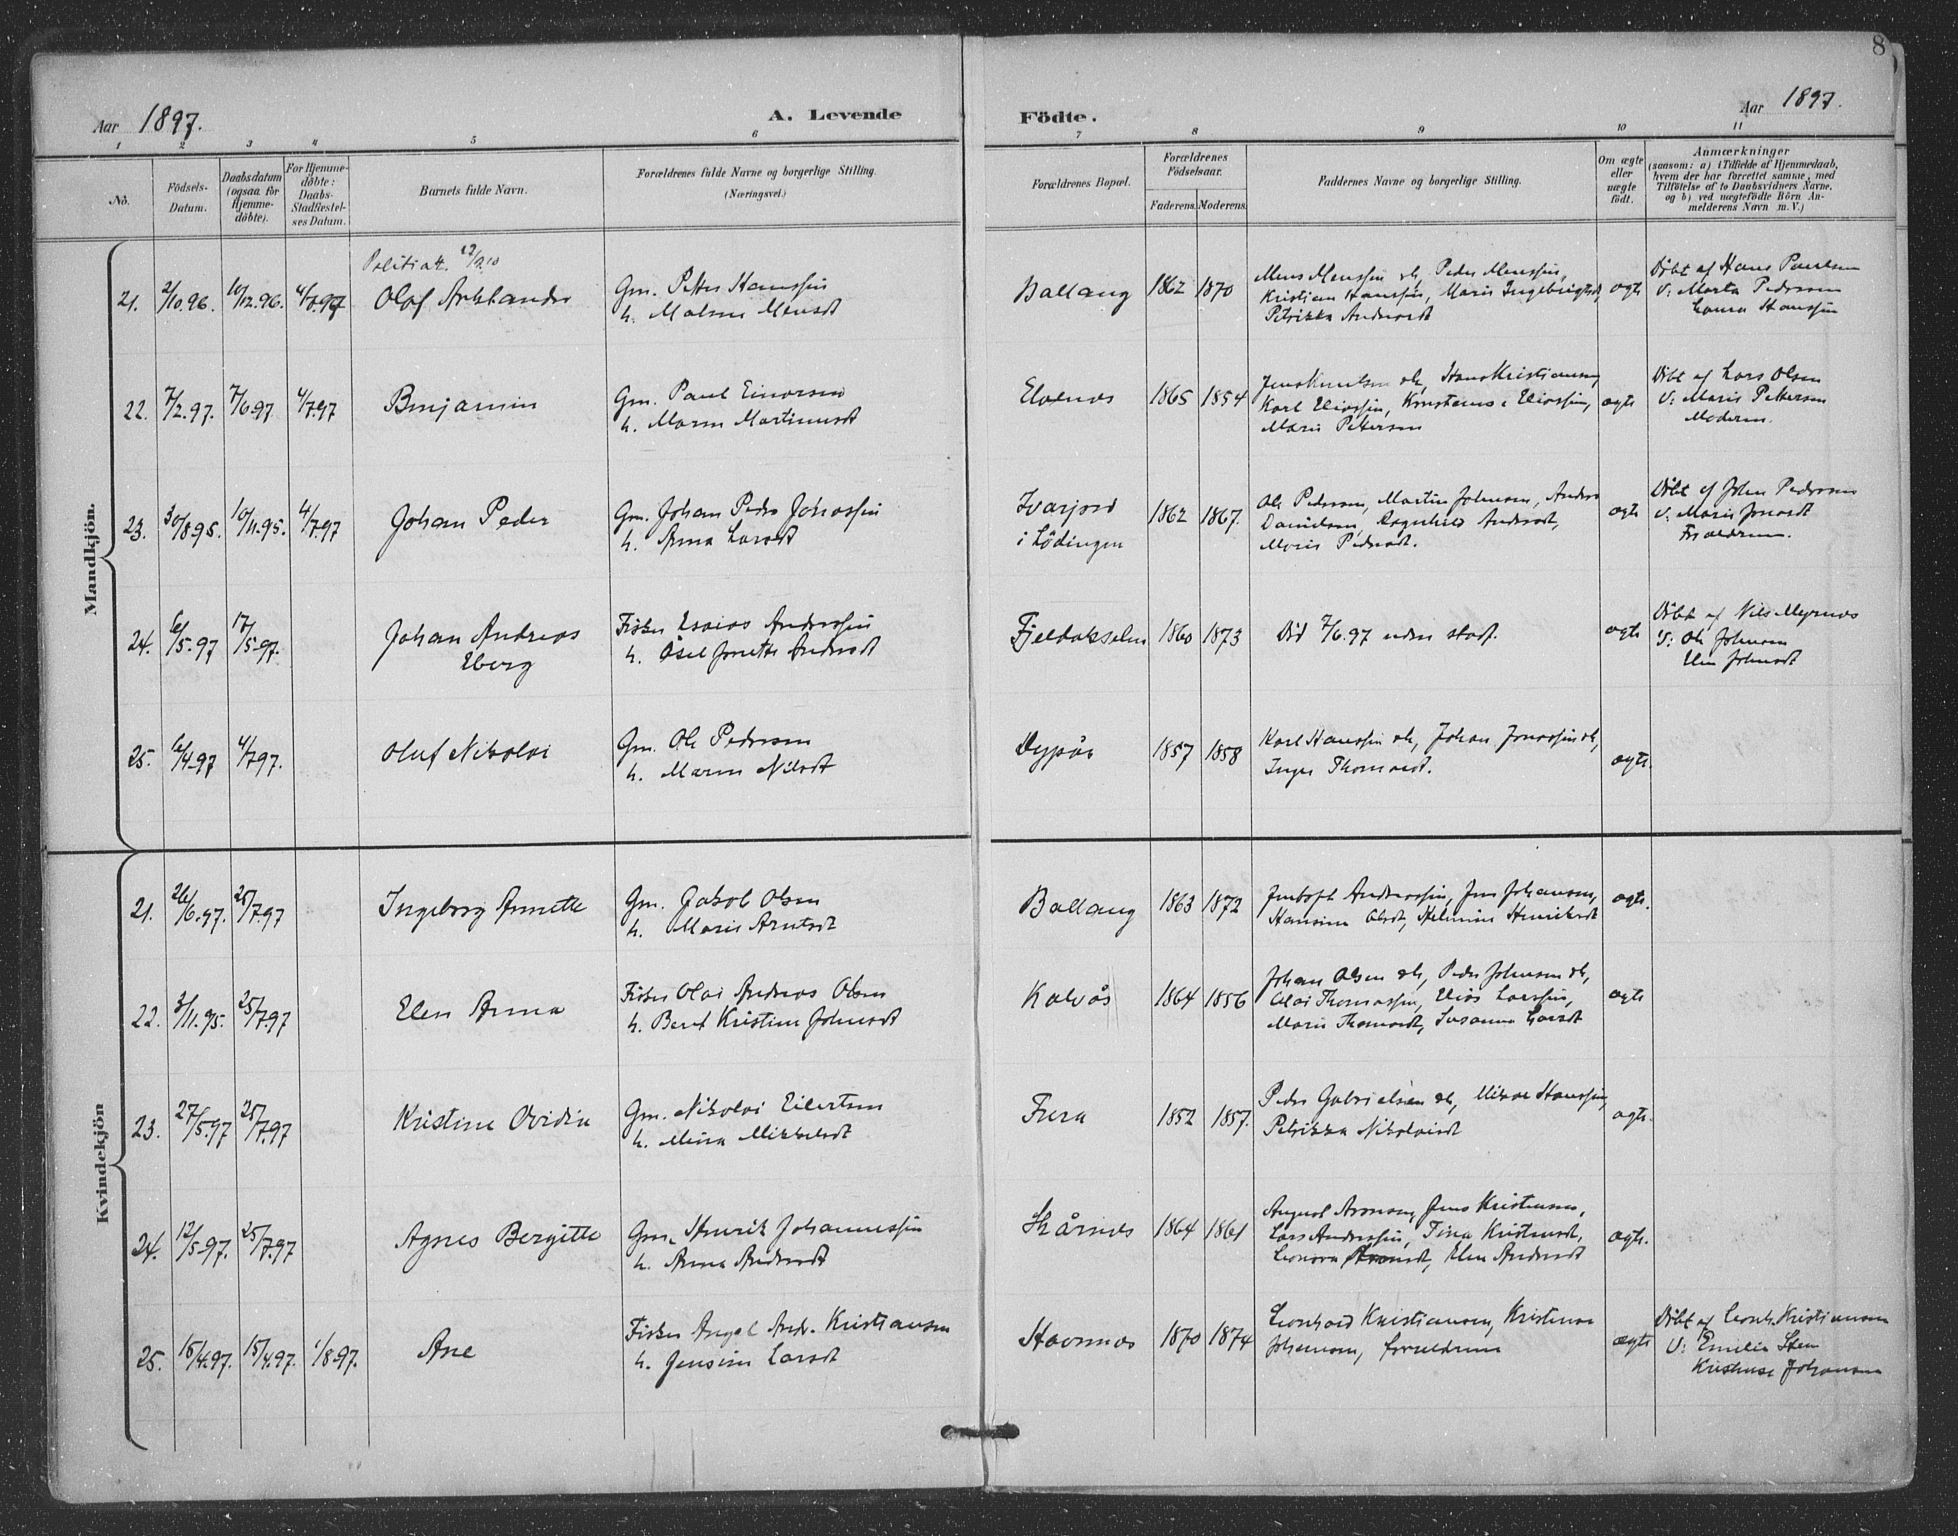 8
Aar 1897.
A. Levende
Födte.
Aar 1897.
1 2 3 4 5 6 7 8 9 10 11
No.
Födsels-
Datum.
Daabsdatum
(ogsaa for
Hjemme-
döbte).
For Hjemme-
döbte:
Daabs-
Stadfæstel-
ses Datum.
Barnets fulde Navn.
Forældrenes fulde Navne og borgerlige Stilling.
(Næringsvei.)
Forældrenes Bopæl.
Forældrenes
Födselsaar.
Faderens. Moderens.
Faddernes Navne og borgerlige Stilling.
Om ægte
eller
uægte
födt.
Anmærkninger
(saasom: a) i Tilfælde af Hjemmedaab,
hvem der har forrettet samme, med
Tilföielse af to Daabsvidners Navne,
og b) ved uægtefödte Börn An-
melderens Navn m. V.)
Mandkjön.
21. 2/10 96. 10/12.96. 4/7.97
Olaf
Gm. Petter Hanssen
h. Mensdt
Ballang 1862 1870
Mons Monssen ob, Peder Monssen,
Kristian Hanssen, Marie Ingebrigtsdt,
Petrikka Andersdt
ægte
Döbt af Hans Paulsen
V: Marta Pedersen
Laura Hanssen
22. 7/2.97. 7/6.97 4/7.97
Benjamin
Gm. Paul Einarsen
h. Maren Martinusdt
Elvenes 1865 1854
Jens Knutsen ob, Hans Kristiansen,
Karl Eliassen, Eliassen,
Marie Pettersen
ægte
Döbt af Lars Olsen
V: Marie Pettersen
Moderen.
23. 30/8.95. 10/11.95. 4/7.97
Johan Peder
Gm. Johan Peder Johassen
h. Anna Larsdt
i Lödingen
1862 1867.
Ole Pedersen, Martin Johnsen, Anders
Danielsen, Ragnhild Andersdt,
Marie Pedersdt.
ægte
Döbt af John Pedersen
V: Marie Jonasdt
Forældrene.
24. 6/5-97 17/5-97.
Johan Andreas
Eberg
Fisker Esaias Anderssen
h. Andersdt
1860 1873
Död 7/6.97 uden stadf.
ægte
Döbt af Nils Myrnes
V: Ole Johnsen
Elen Johnsdt
25. 6/4-97 4/7.97.
Oluf Nikolai
Gm. Ole Pedersen
h. Maren Nilsdt
Dypås 1857 1858
Karl Hanssen ob, Johan Jonassen ob,
Inger Thomasdt.
ægte.
Kvindekjön
21. 26/6.97. 25/7.97
Ingeborg Annette
Gm. Jakob Olsen
h. Marie Arntsdt
Ballang 1863 1872
Anderssen, Jens Johansen,
Hansine Olsdt, Helmine Henriksdt
ægte.
22. 3/11.95. 25/7.97
Elen Anna
Fisker Olai Andreas Olsen
h. Beret Kristine Johnsdt
Kalvås 1864 1856
Johan Olsen ob, Peder Johnsen ob,
Olai Thomassen, Elias Larssen,
Marie Thomasdt, Susanna Larsdt
ægte
23. 27/5.97 25/7.97
Kristine Ovidia
Gm. Nikolai Eilertsen
h. Mina Mikkelsdt
1852 1857.
Peder Gabrielsen ob, Mikal Hanssen,
Petrikka Nikolaisdt
ægte.
24. 12/5-97. 25/7.97
Agnes Bergitte
Gm. Henrik Johannessen
h. Anna Andersdt
Skårnes 1864 1861
August Aronsen, Jens Kristensen,
Lars Anderssen, Tina Kristensdt,
Leonora Aronsdt, Elen Andersdt
ægte.
25. 15/4.97. 15/4.97. 1/8.97.
Ane
Fisker Angel Andr. Kristiansen
h. Jensine Larsdt
Havnnes 1870 1874
Leonhard Kristiansen, Kristense
Johansen, forældrene
ægte
Döbt af Leonh. Kristiansen
V: Emilie Steen
Kristense Johansen